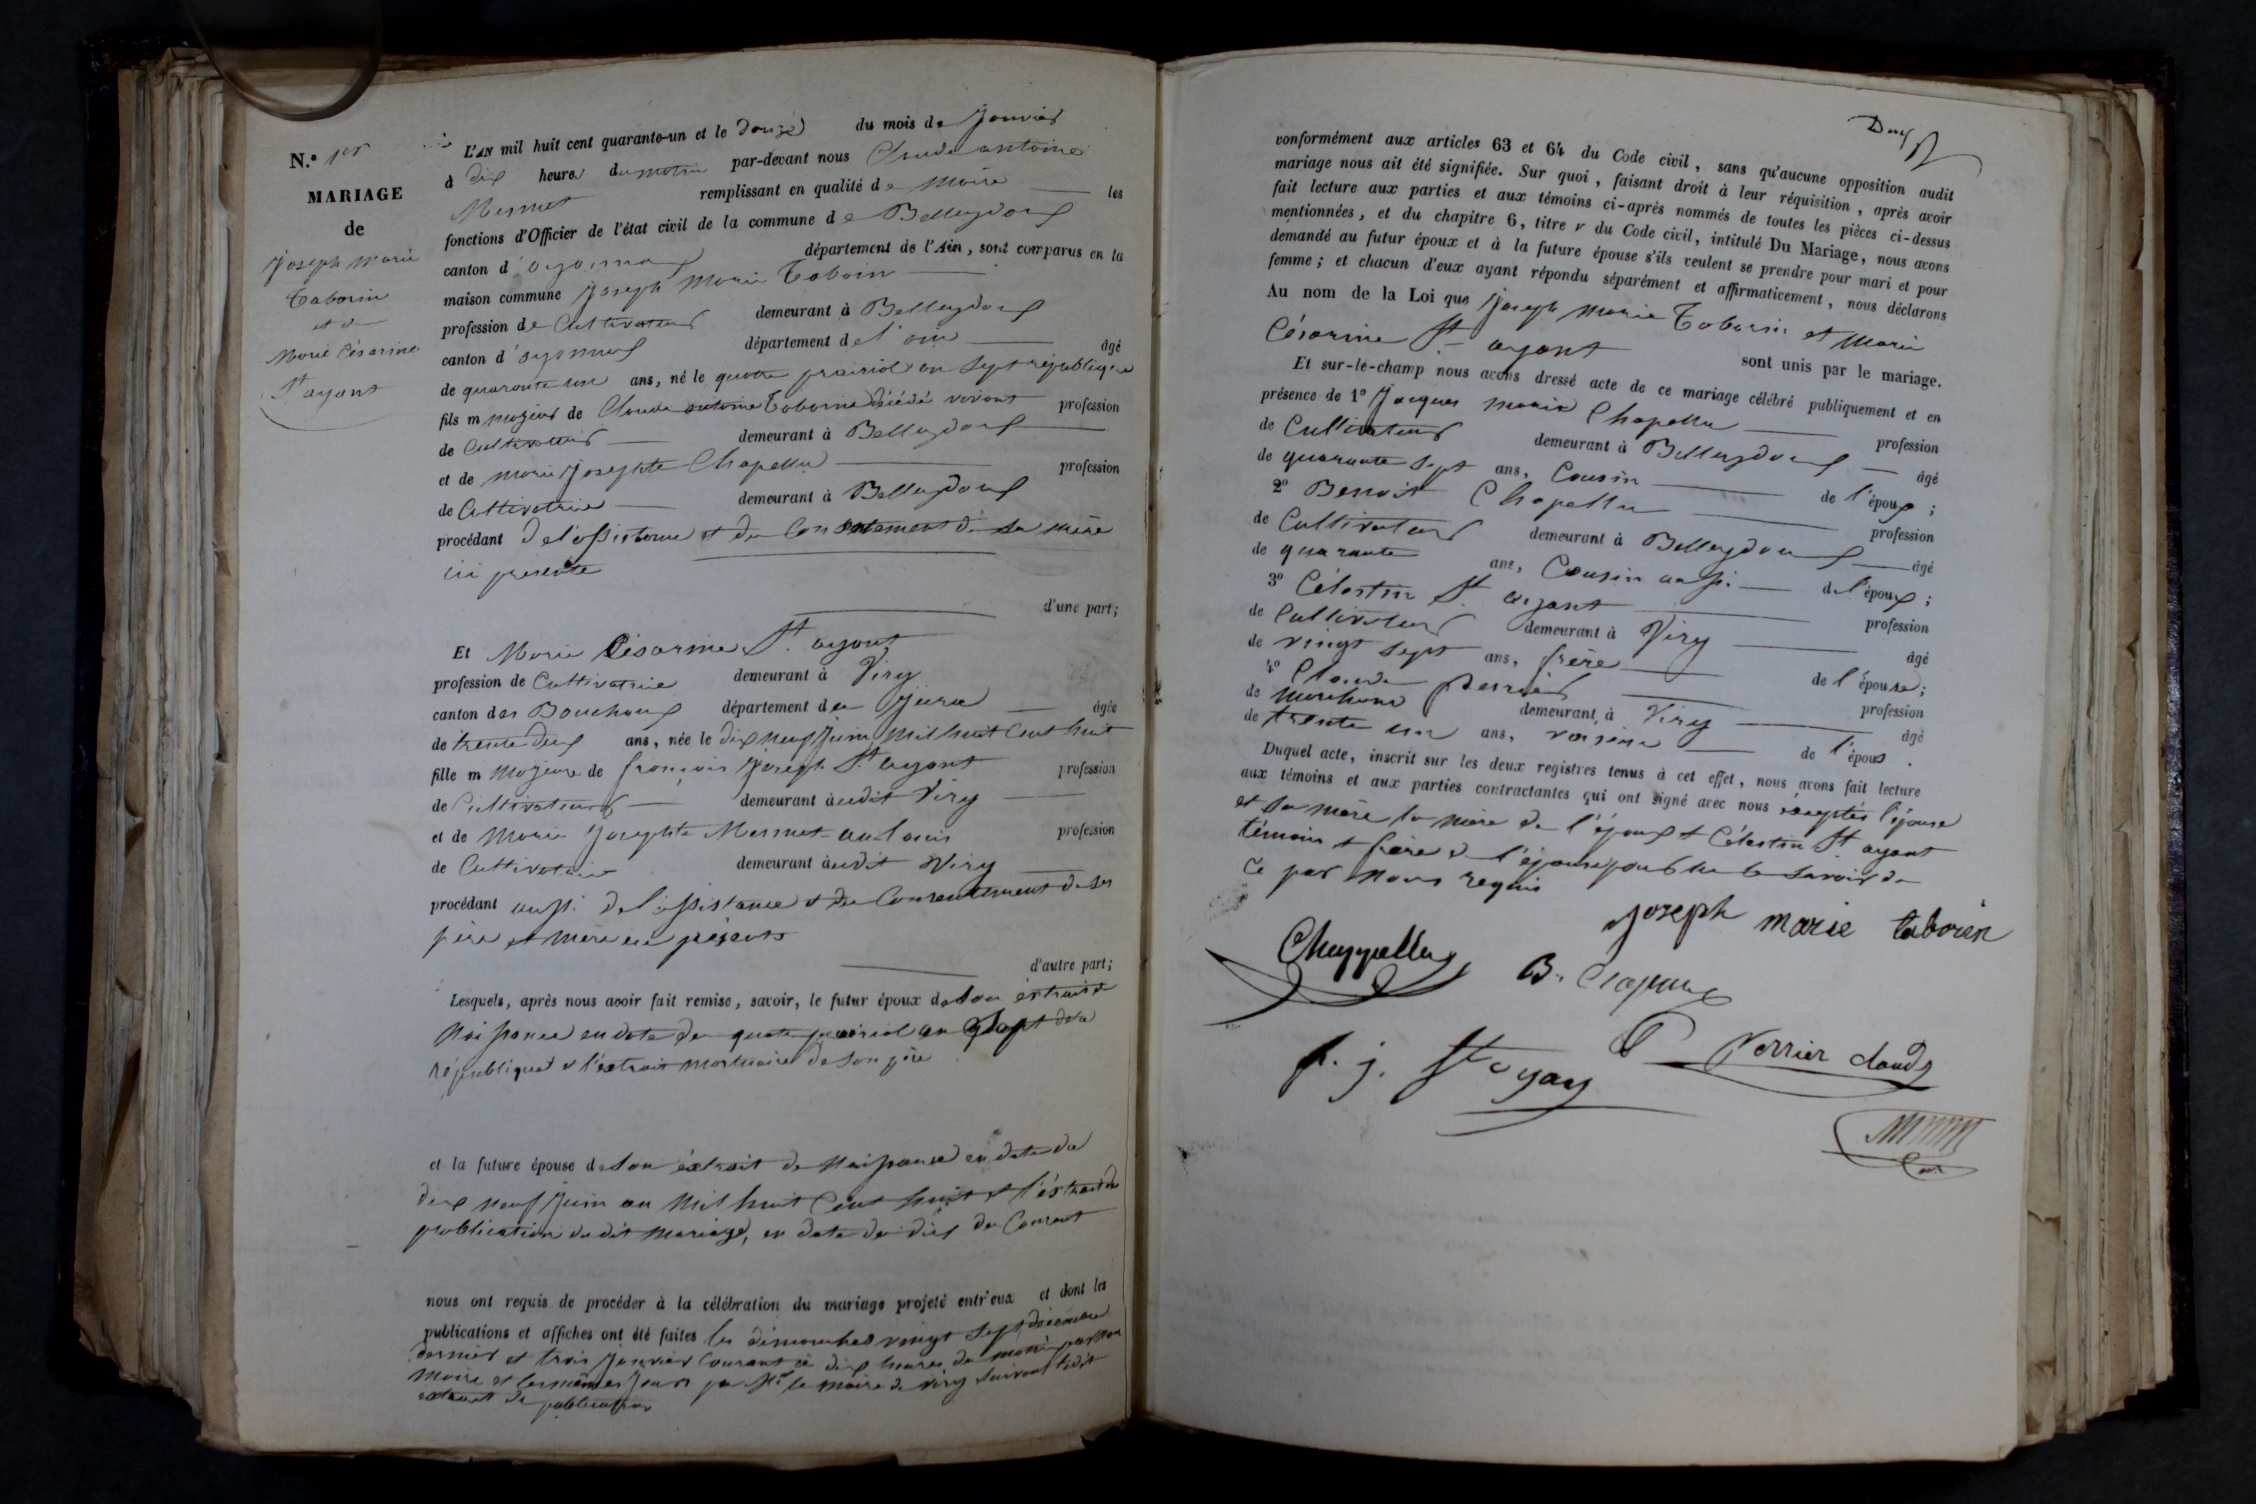 N.º 1er
MARIAGE
de
Joseph Marie
Taborin
et de
Marie Césarine
St ayant
L'AN mil huit cent quarante-un et le Douze du mois de Janvier
à dix heures du matin par-devant nous Claude antoine
Mermet remplissant en qualité de Maire les
fonctions d'Officier de l'état civil de la commune de Belleydoux
canton d'oyonnax département de l'Ain, sont comparus en la
maison commune Joseph Marie Taborin
profession de Cultivateur demeurant à Belleydoux
canton d'oyonnax département de l'ain âgé
de quarante un ans, né le quatre prairial an sept république
fils m majeur de Claude antoine Taborin décédé vivant profession
de Cultivateur demeurant à Belleydoux
et de marie Josephte Chapellu profession
de Cultivatrice demeurant à Belleydoux
procédant de l'assistance et du Consentement de sa mère
ici présente
d'une part;
Et Marie Césarine St. ayant
profession de Cultivatrice demeurant à Viry
canton des Bouchoux département du Jura âgée
de trente deux ans, née le dix neuf Juin Mil huit Cent huit
fille m Majeure de françois Joseph St ayant profession
de Cultivateur demeurant audit Viry
et de Marie Josephte Mermet-au-louis profession
de Cultivatrice demeurant audit Viry
procédant aussi de l'assistance et du Consentement de ses
père et mère ici présents
d'autre part;
Lesquels, après nous avoir fait remise, savoir, le futur époux de son extrait de
Naissance en date du quatre prairial an Sept de la
république et l'extrait mortuaire de son père
et la future épouse de son extrait de Naissance en date du
dix neuf Juin an Mil huit Cent huit et l'extrait de
publication du dit Mariage, en date du dix du Courant
nous ont requis de procéder à la célébration du mariage projeté entr'eux et dont les
publications et affiches ont été faites les dimanches vingt sept décembre
dernier et trois Janvier Courant à dix heures du matin par nous
Maire et les mêmes Jours par Mr le maire de Viry suivant ledit
extrait de publication
conformément aux articles 63 et 64 du Code civil, sans qu'aucune opposition audit
mariage nous ait été signifiée. Sur quoi, faisant droit à leur réquisition, après avoir
fait lecture aux parties et aux témoins ci-après nommés de toutes les pièces ci-dessus
mentionnées, et du chapitre 6, titre v du Code civil, intitulé Du Mariage, nous avons
demandé au futur époux et à la future épouse s'ils veulent se prendre pour mari et pour
femme; et chacun d'eux ayant répondu séparément et affirmativement, nous déclarons
Au nom de la Loi que Joseph Marie Taborin et Marie
Césarine St- ayant sont unis par le mariage.
Et sur-le-champ nous avons dressé acte de ce mariage célébré publiquement et en
présence de 1º Jacques Marie Chapellu profession
de Cultivateur demeurant à Belleydoux âgé
de quarante sept ans, Cousin de l'époux;
2º Benoit Chapellu profession
de Cultivateur demeurant à Belleydoux âgé
de quarante ans, Cousin aussi de l'époux;
3º Célestin St ayant profession
de Cultivateur demeurant à Viry âgé
de vingt sept ans, frère de l'épouse;
4º Claude Perrier profession
de Marchand demeurant à Viry âgé
de trente un ans, voisin de l'époux.
Duquel acte, inscrit sur les deux registres tenus à cet effet, nous avons fait lecture
aux témoins et aux parties contractantes qui ont signé avec nous éxceptés l'épouse
et sa mère la mère de l'époux et Célestin St ayant
témoin et frère de l'épouse pour ne le savoir de
Ce par nous requis
Joseph marie taborin
Chappellu
f. j. St oyan
Perrier claude